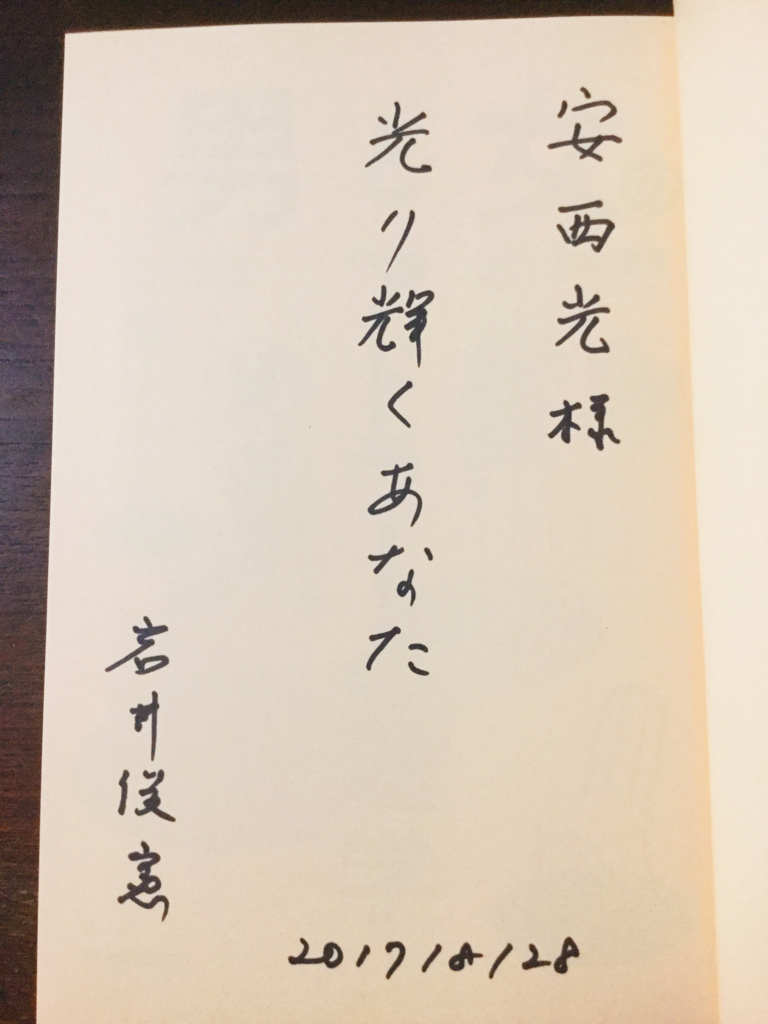 安西光様
光り輝くあなた
岩井俊憲
2017/8/28